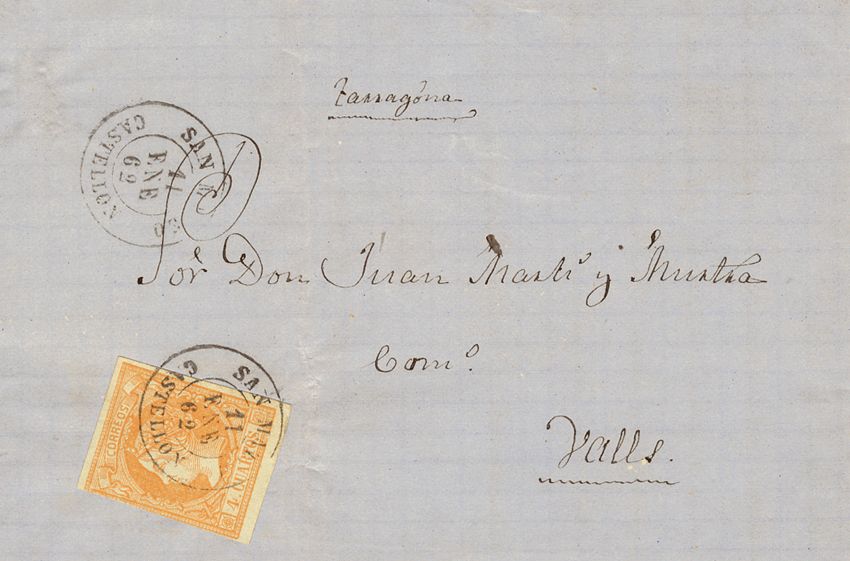 Tarragona
SAN M
11
ENE
62
CASTELLON
Sor Don Juan Marti y Muntra
Como
Valls.
SAN M
11
ENE
62
CASTELLON
CORREOS